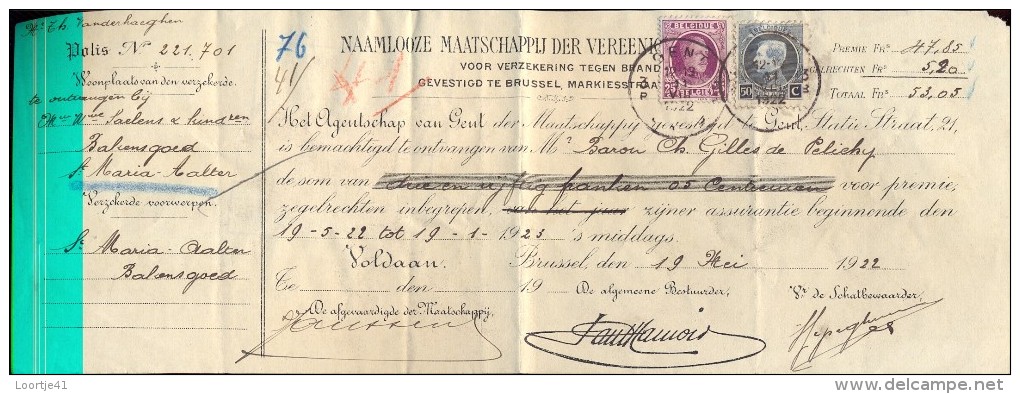 Mr Th. Vanderhaeghen
Polis No 221.701
Woonplaats van den verzekerde.
te ontvangen bij
Mme Wwe Saelens & kinderen
Bakensgoed
St Maria-Aalter
Verzekerde voorwerpen.
St Maria-Aalter
Bakensgoed
76
41/
NAAMLOOZE MAATSCHAPPIJ DER VEREENIG
VOOR VERZEKERING TEGEN BRAND
GEVESTIGD TE BRUSSEL, MARKIESSTRAA
BELGIQUE
25
BELGIË
50
C
1922
1922
PREMIE FRs 47,85
ZEGELRECHTEN FRs 5,20
TOTAAL FRs 53,05
Het Agentschap van Gent der Maatschappij, gevestigd te Gent, Statie Straat, 21,
is bemachtigd te ontvangen van Mr Baron Ch. Gilles de Pelichy
de som van drie en vijftig franken 05 Centiemen voor premie,
zegelrechten inbegrepen, van het jaar zijner assurantie beginnende den
19-5-22 tot 19-1-1923 's middags.
Voldaan. Brussel, den 19 Mei 1922
Te den 19
De algemeene Bestuurder, Vr de Schatbewaarder,
De afgevaardigde der Maatschappij,
Janssen
Loortje41
©delcampe.net